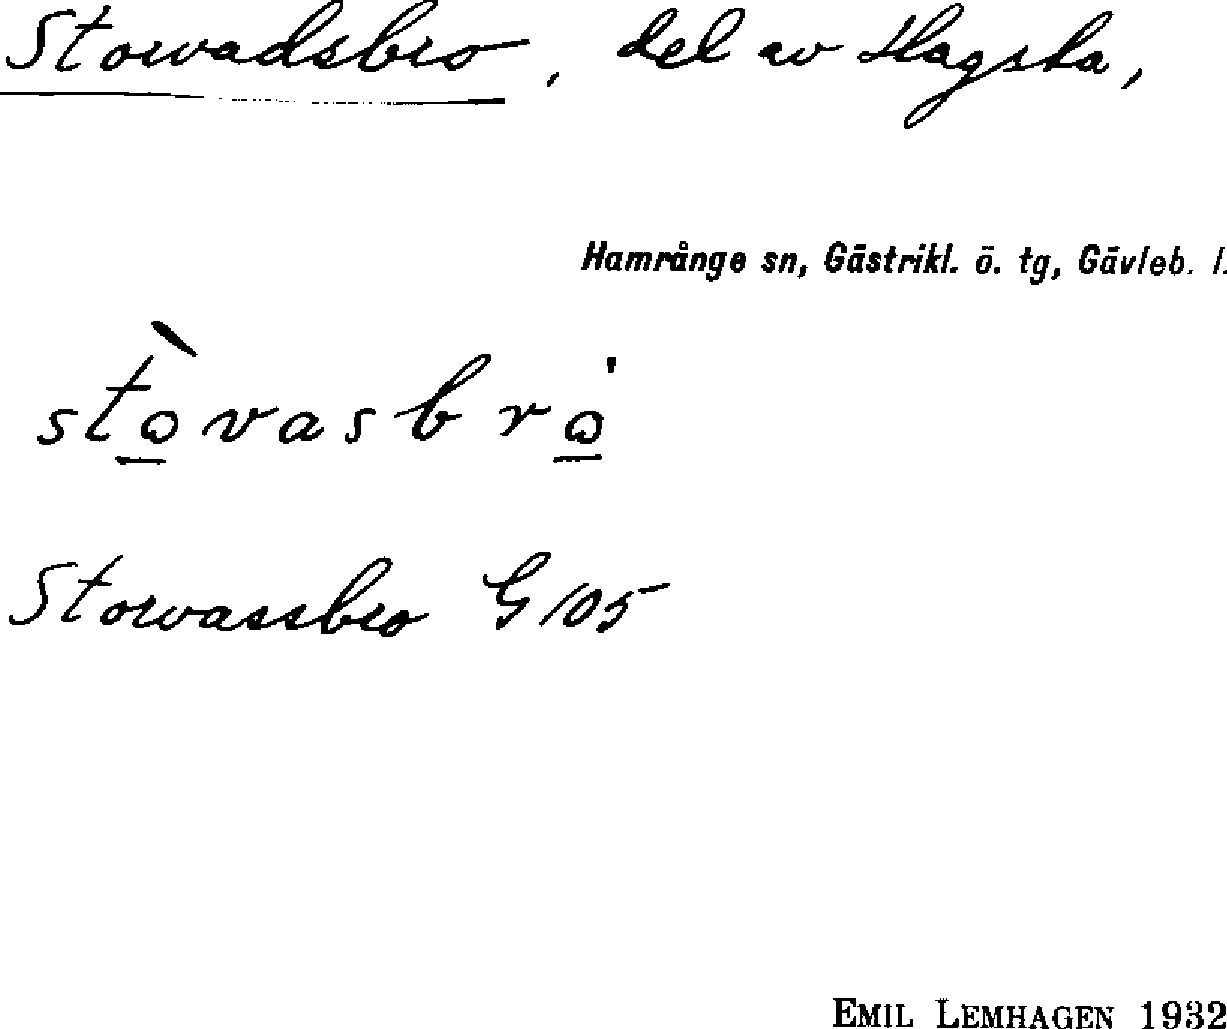 Storvadsbro, del av Hagsta,
Hamrånge sn, Gästrikl. ö. tg, Gävleb. l.
stò̱vasbrò̱
Storvassbro G 105
EMIL LEMHAGEN 1932